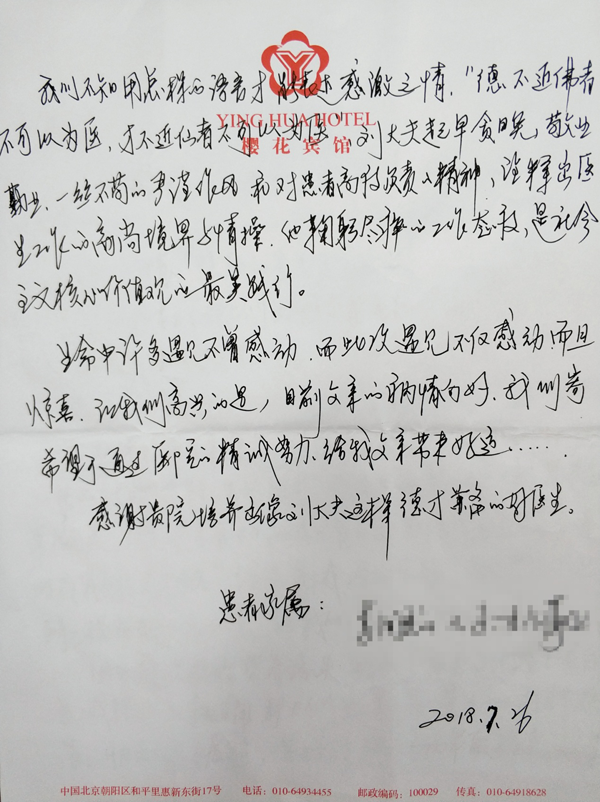 我们不知用怎样的语言才能表达感激之情，“德不近佛者
YING HUA HOTEL
不可以为医，才不近仙者不可以为医”刘大夫起早贪晚，敬业
樱花宾馆
勤业、一丝不苟的严谨作风和对患者高持负责的精神，诠释出医
生工作的高尚境界与情操。他鞠躬尽瘁的工作态度，是社会
主义核心价值观的最美践行。
生命中许多遇见不曾感动，而此次遇见不仅感动而且
惊喜。让我们高兴的是，目前父亲的病情向好，我们寄
希望于通过医院的精诚努力、给我父亲带来好运……
感谢贵院培养出像刘大夫这样德才兼备的好医生。
患者家属：
2018.7.26
中国北京朝阳区和平里惠新东街17号 电话：010-64934455 邮政编码：100029 传真：010-64918628